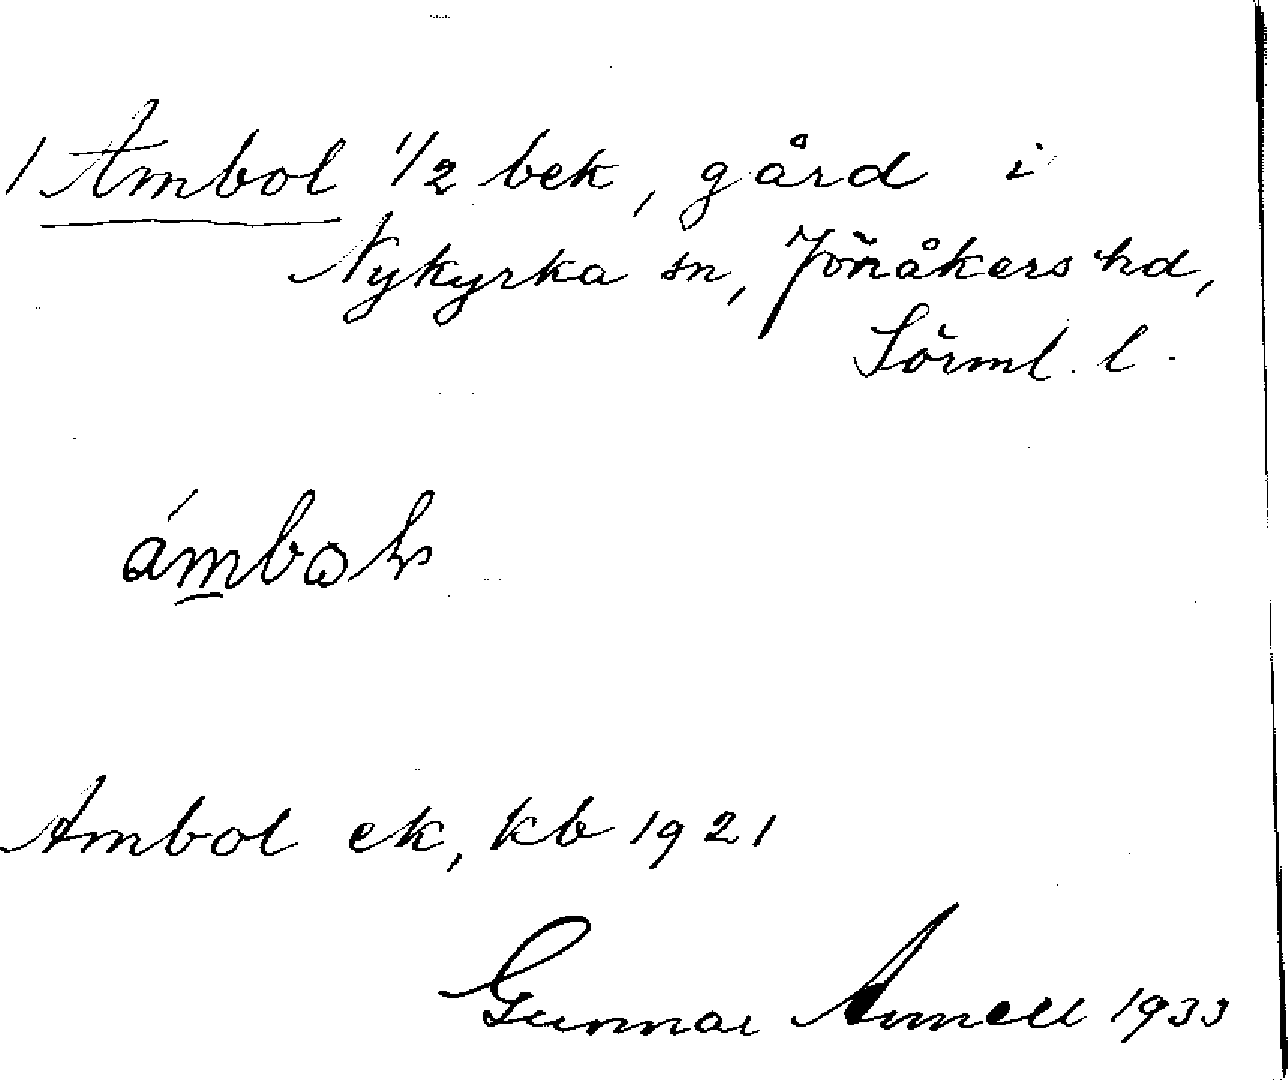 1 Ambol 1/2 bek, gård i
Nykyrka sn, Jönåkers hd,
Sörml. l.
Ambol ek, kb 1921
Gunnar Annell 1933